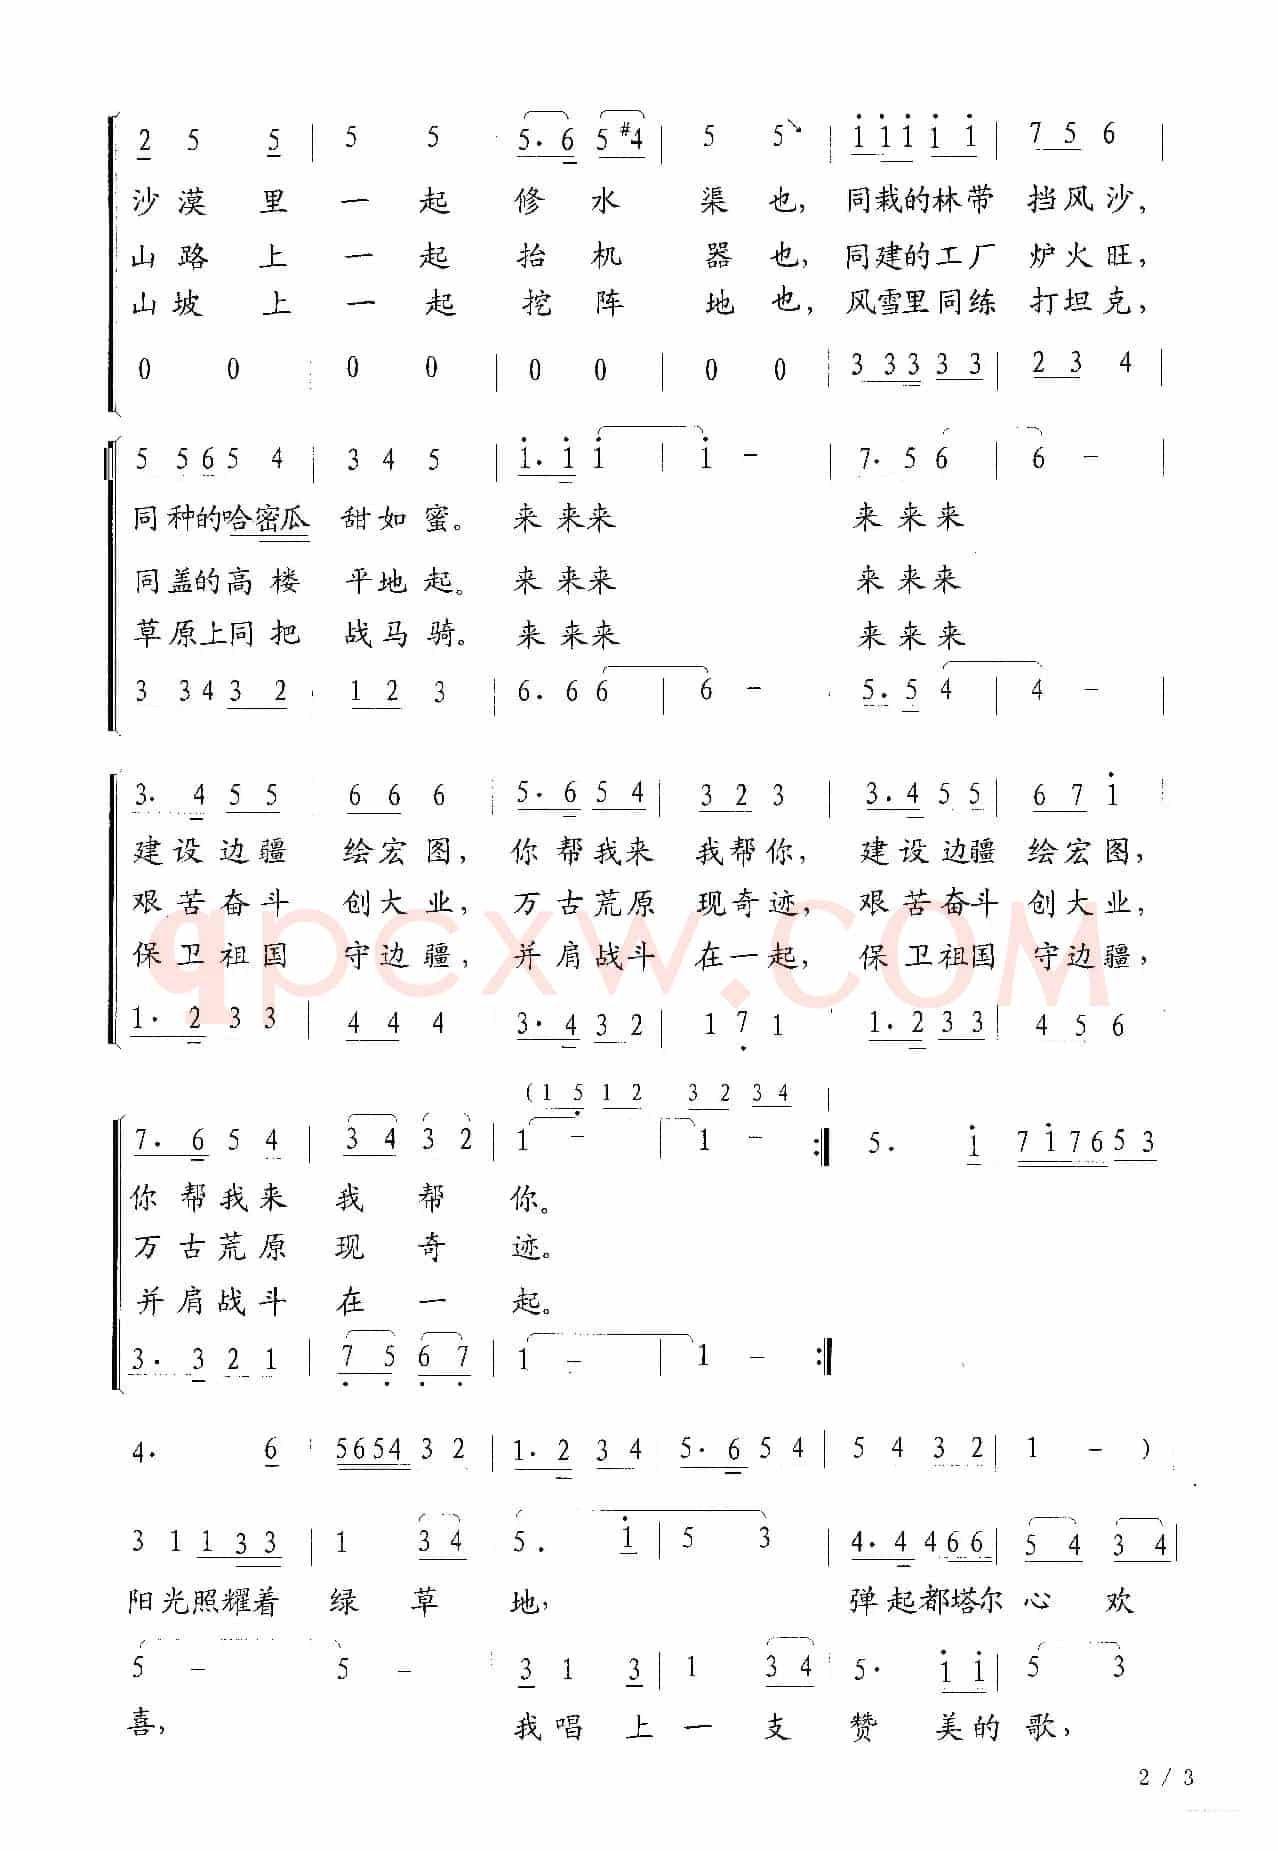 2 5 5 | 5 5 | 5. 6 5 #4 | 5 5 | i i i i i | 7 5 6 |
沙漠里一起修水渠也，同栽的林带挡风沙，
山路上一起抬机器也，同建的工厂炉火旺，
山坡上一起挖阵地也，风雪里同练打坦克，
0 0 | 0 0 | 0 0 | 0 0 | 3 3 3 3 3 | 2 3 4 |
5 5 6 5 4 | 3 4 5 | i. i i | i - | 7. 5 6 | 6 - |
同种的哈密瓜甜如蜜。来来来来来来
同盖的高楼平地起。来来来来来来
草原上同把战马骑。来来来来来来
3 3 4 3 2 | 1 2 3 | 6. 6 6 | 6 - | 5. 5 4 | 4 - |
3. 4 5 5 | 6 6 6 | 5. 6 5 4 | 3 2 3 | 3. 4 5 5 | 6 7 i |
建设边疆绘宏图，你帮我来我帮你，建设边疆绘宏图，
艰苦奋斗创大业，万古荒原现奇迹，艰苦奋斗创大业，
qpcxw.COM
保卫祖国守边疆，并肩战斗在一起，保卫祖国守边疆，
1. 2 3 3 | 4 4 4 | 3. 4 3 2 | 1 7 1 | 1. 2 3 3 | 4 5 6
(1 5 1 2 3 2 3 4 |
7. 6 5 4 | 3 4 3 2 | 1 - | 1 - :| 5. i 7 i 7 6 5 3
你帮我来我帮你。
万古荒原现奇迹。
并肩战斗在一起。
3. 3 2 1 | 7 5 6 7 | 1 - | 1 - :|
4. 6 | 5 6 5 4 3 2 | 1. 2 3 4 | 5. 6 5 4 | 5 4 3 2 | 1 - )
3 1 1 3 3 | 1 3 4 | 5. i | 5 3 | 4. 4 4 6 6 | 5 4 3 4 |
阳光照耀着绿草地，弹起都塔尔心欢
5 - | 5 - | 3 1 3 | 1 3 4 | 5. i i | 5 3
喜，我唱上一支赞美的歌，
2 / 3